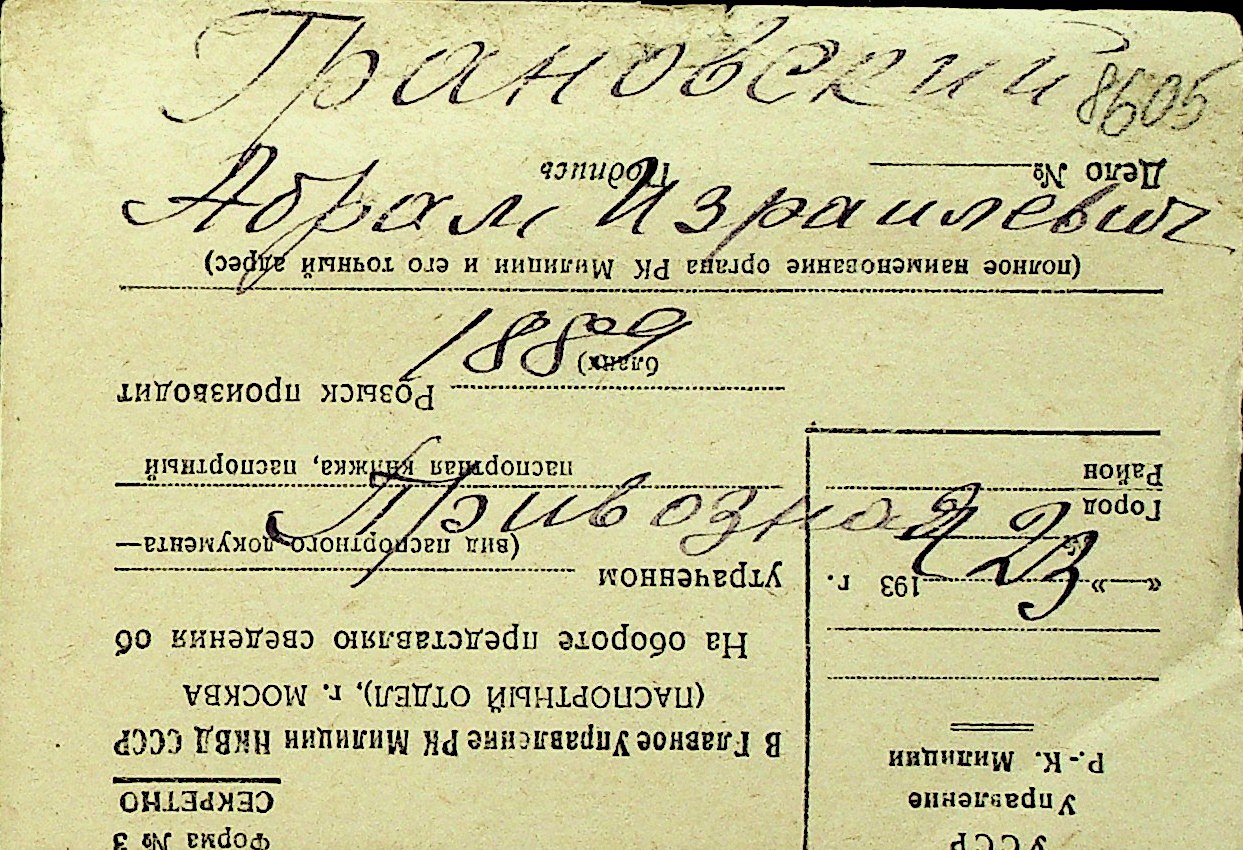 Грановский 8605
Абрам Израилевич
1889
Привозная
23
Форма № 3
СЕКРЕТНО
УССР
Управление
Р.-К. Милиции
«___»___193 г.
Город
Район
В Главное Управление РК Милиции НКВД СССР
(ПАСПОРТНЫЙ ОТДЕЛ), г. МОСКВА
На обороте представляю сведения об
утраченном
(вид паспортного документа—
паспортная книжка, паспортный
бланк)
Розыск производит
(полное наименование органа РК Милиции и его точный адрес)
Дело № Подпись